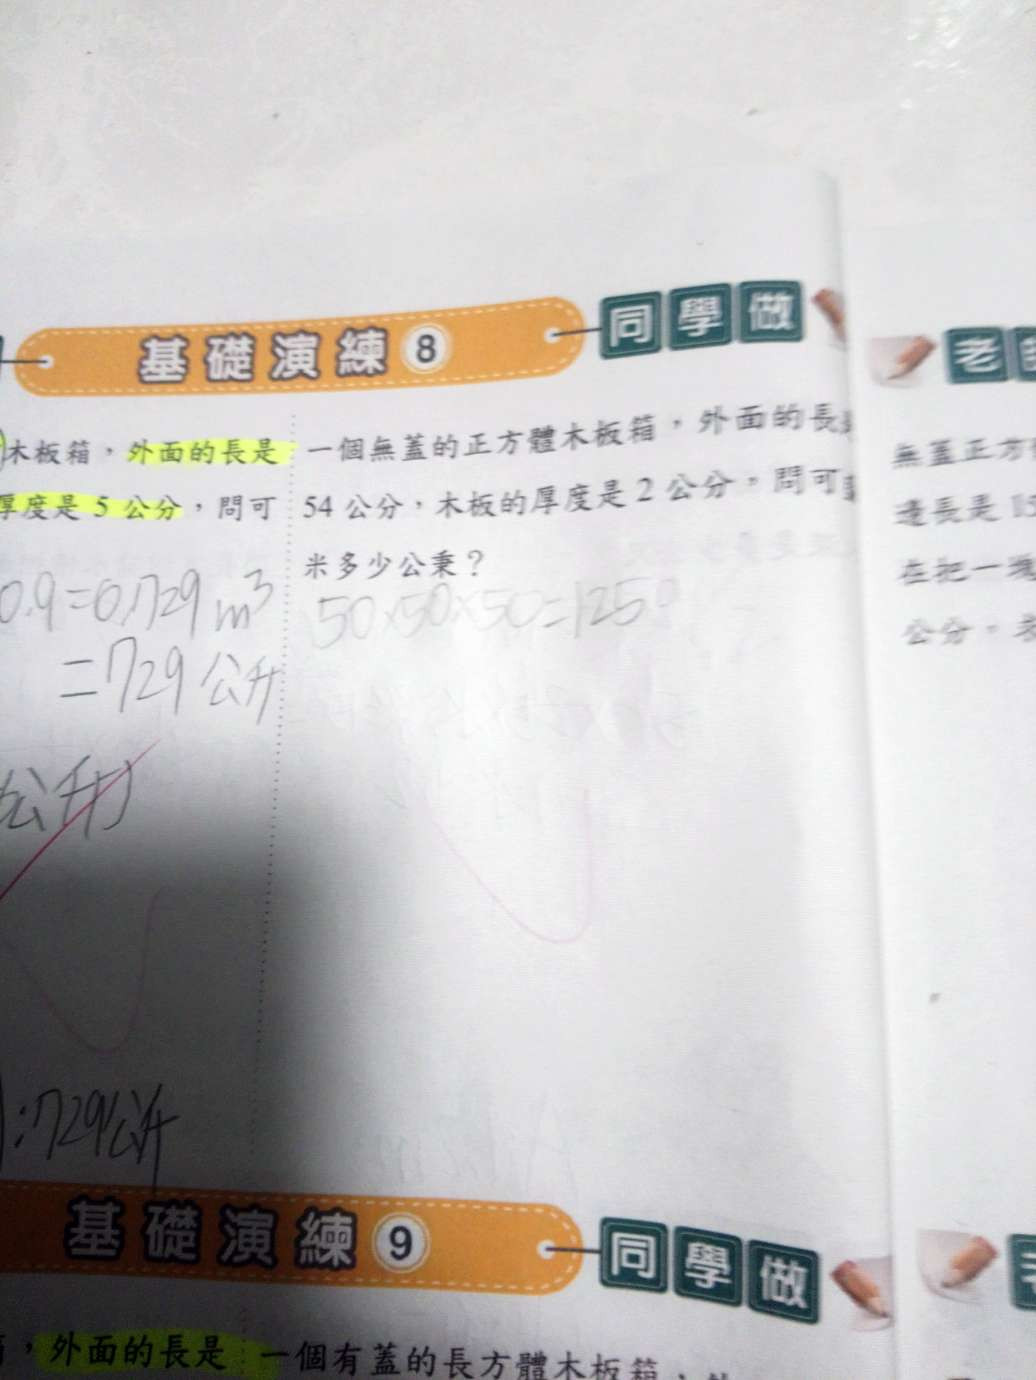 基礎演練 8 同學做
木板箱，外面的長是
厚度是 5 公分，問可
0.9=0.729 m³
=729 公升
公升)
:729公升
一個無蓋的正方體木板箱，外面的長
54 公分，木板的厚度是 2 公分，問可
米多少公秉？
50×50×50=1250
老
無蓋正方
邊長是 15
在把一塊
公分。
基礎演練 9 同學做
，外面的長是
一個有蓋的長方體木板箱，